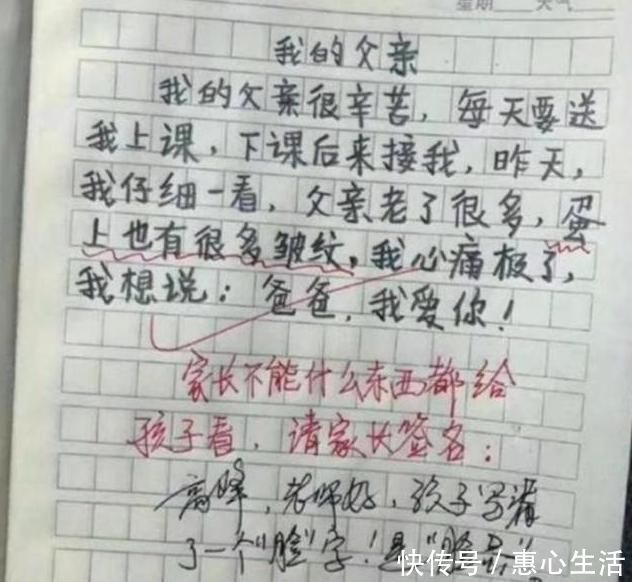 星期 天气
我的父亲
我的父亲很辛苦，每天要送
我上课，下课后来接我，昨天，
我仔细一看，父亲老了很多，蛋
上也有很多皱纹，我心痛极了，
我想说：爸爸，我爱你！
家长不能什么东西都给
孩子看，请家长签名：
高峰，老师好，孩子写漏
了一个“脸”字！是“脸蛋”
快传号/惠心生活